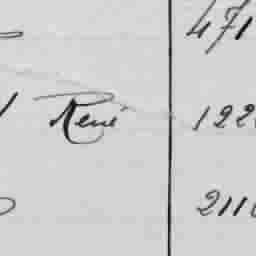 471
René 122
211